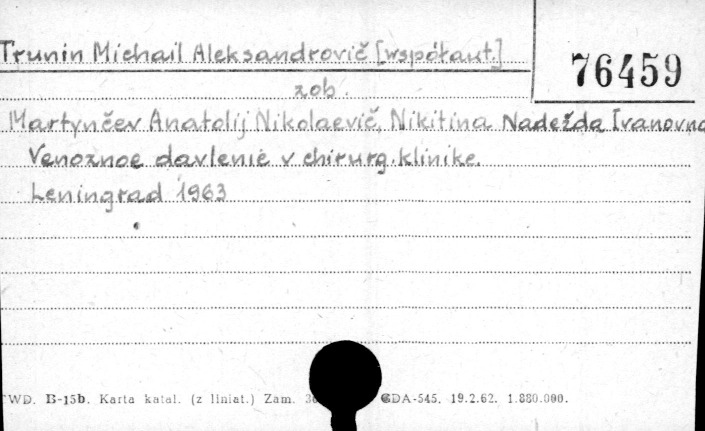 Trunin Michail Aleksandrovič [współaut.]
76459
zob.
Martynčev Anatolij Nikolaevič, Nikitina Nadežda Ivanovna
Venoznoe davlenie v chirurg. klinike.
Leningrad 1963
CWD. B-15b. Karta katal. (z liniat.) Zam. GDA-545. 19.2.62. 1.880.000.